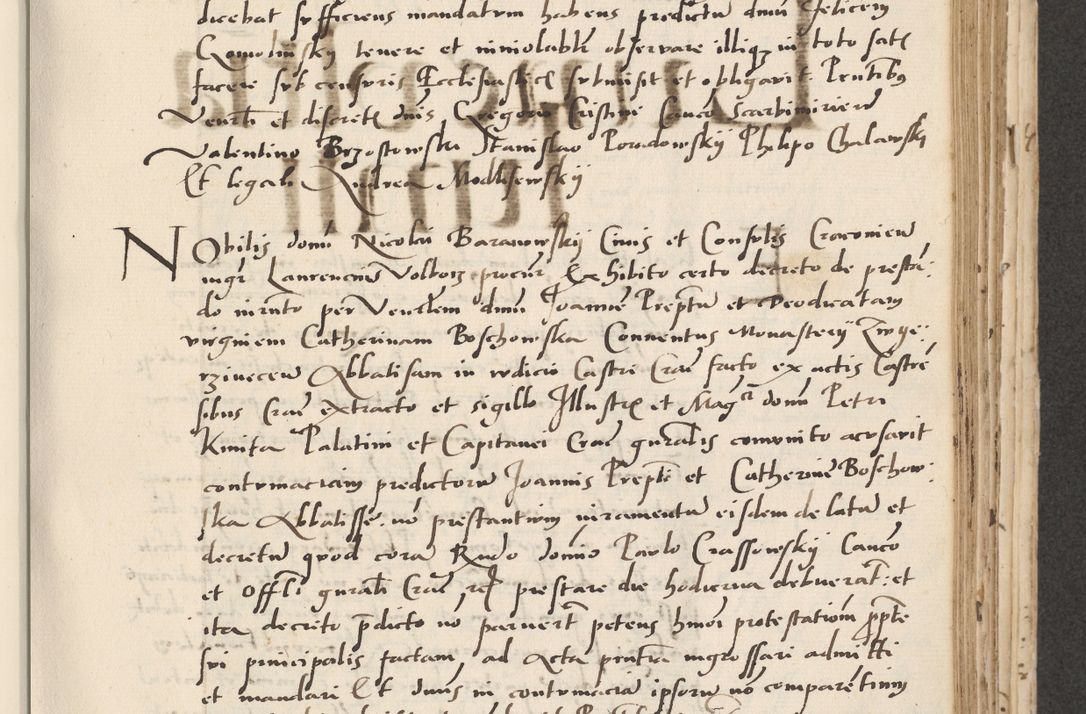 dicebat sufficiens mandatum habens predictū dnm̄ Felicem
Gomolinsky tenere et inviolabłr observare illiqȝ in toto satꝭ
facere sub censuris Ecclesiasticꝭ submisit et obligavit. Pntibȝ
Venerłi et discretꝭ dnis Gregorio Cristini Canco Scarbimirien̄
Valentino Brzostowski Stanislao Poradowskÿ Philipo Chalawskÿ
Et legali Andrea Modlisewskÿ
Nobilis domi Nicolai Baranowskÿ Civis et Consulis Cracovien̄
mgr Laurencius Volborz procur Exhibito certo decreto de prestan
do iuramto per Venerłem dnm̄ Joannē Preptū et Deodicatam
virginem Catherinam Boschowska Conventus Monasterÿ Zwye
rziniecen̄ Abbatissam in iudicio Castri Crac̄ facto ex actis Castren̄
sibus Crac̄ extracto et sigillo Illustrꝭ et Magci domi Petri
Kmita Palatini et Capitanei Crac̄ gnralis comunito acusavit
contumaciam predictorū Joannis Prepti et Catherine Boschow
ska Abbatisse. nō prestantium iuramentū eisdem delatū et
decretū quod coram Rndo domino Paulo Crassowskÿ Canco
et Offłi gnrali Crac̄ prestare die hodierna debuerāt: et
ita decreto p̄dicto nō paruerūt petens hmōi protestationem ppte
sui principalis factam, ad Acta pntia ingrossari admitti
et mandari Et dnus in contumaciā ipsorū nō comparētium